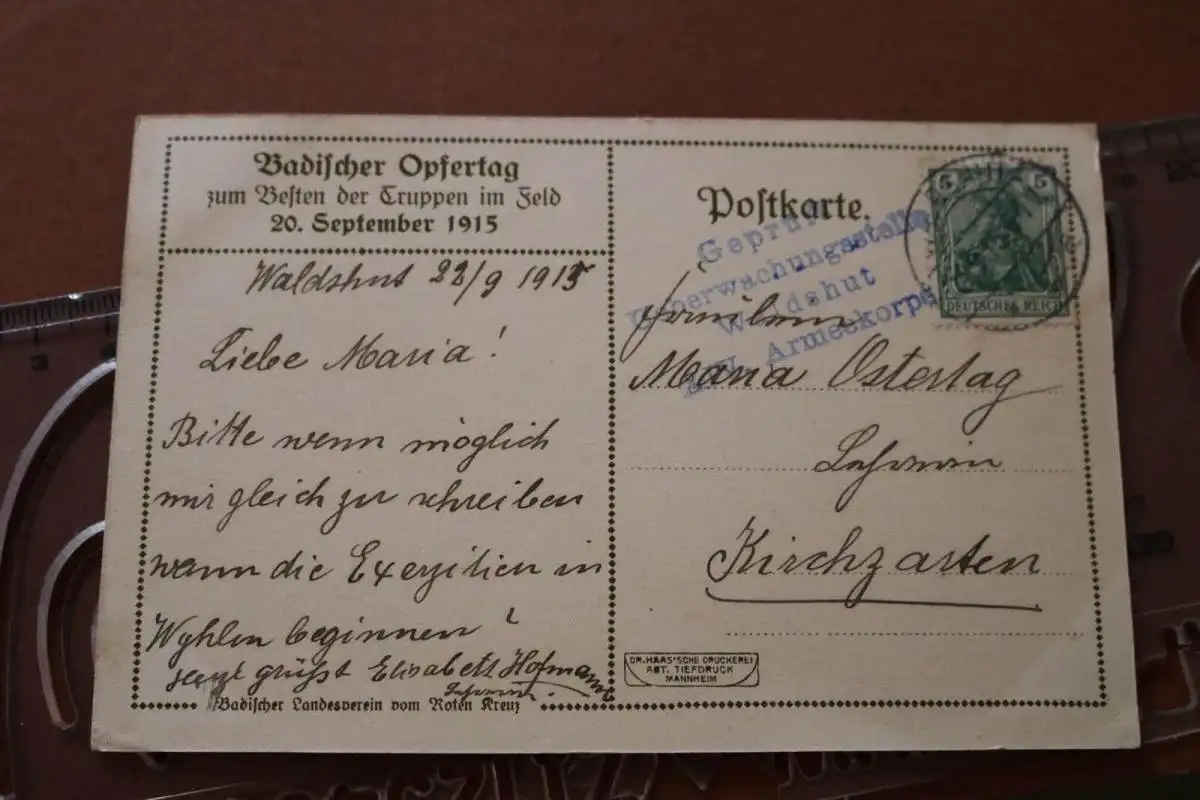 Badischer Opfertag
zum Besten der Truppen im Feld
20. September 1915
Waldshut 22/9 1915
Liebe Maria!
Bitte wenn möglich
mir gleich zu schreiben
wann die Exerzitien in
Wyhlen beginnen?
grüßt Elisabeth Hofmann
Lehrerin.
Badischer Landesverein vom Roten Kreuz
Postkarte.
Geprüft
Ueberwachungsstelle
Waldshut
Armeekorps
5 5
DEUTSCHES REICH
Fräulein
Maria Ostertag
Lehrerin
Kirchzarten
DR. HAAS'SCHE DRUCKEREI
ABT. TIEFDRUCK
MANNHEIM